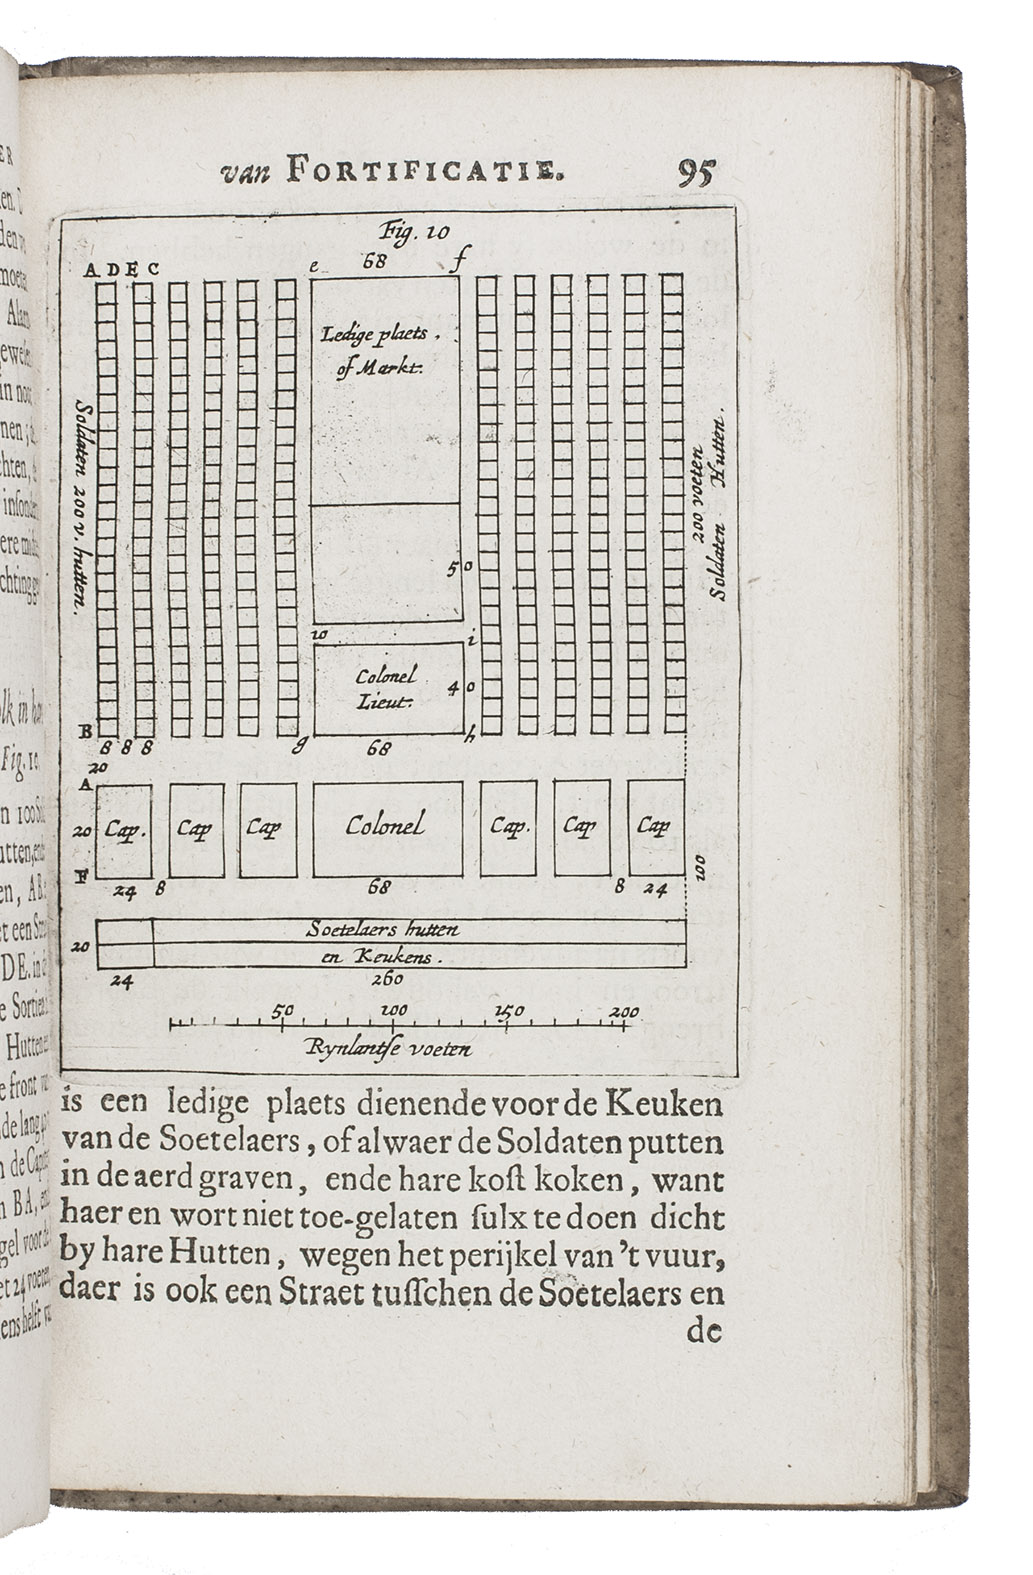 van FORTIFICATIE. 95
Fig. 10
68
A D E C e f
Ledige plaets.
of Markt.
Soldaten 200 v. hutten.
200 voeten
Soldaten Hutten.
50
10 i
Colonel
Lieut.
40
B g h
8 8 8 68
20
A
20 Cap. Cap Cap Colonel Cap. Cap Cap
F
24 8 68 8 24
100
Soetelaers hutten
20
en Keukens.
24 260
50 100 150 200
Rynlantse voeten
is een ledige plaets dienende voor de Keuken
van de Soetelaers, of alwaer de Soldaten putten
in de aerd graven, ende hare koſt koken, want
haer en wort niet toe-gelaten ſulx te doen dicht
by hare Hutten, wegen het perijkel van 't vuur,
daer is ook een Straet tuſſchen de Soetelaers en
de